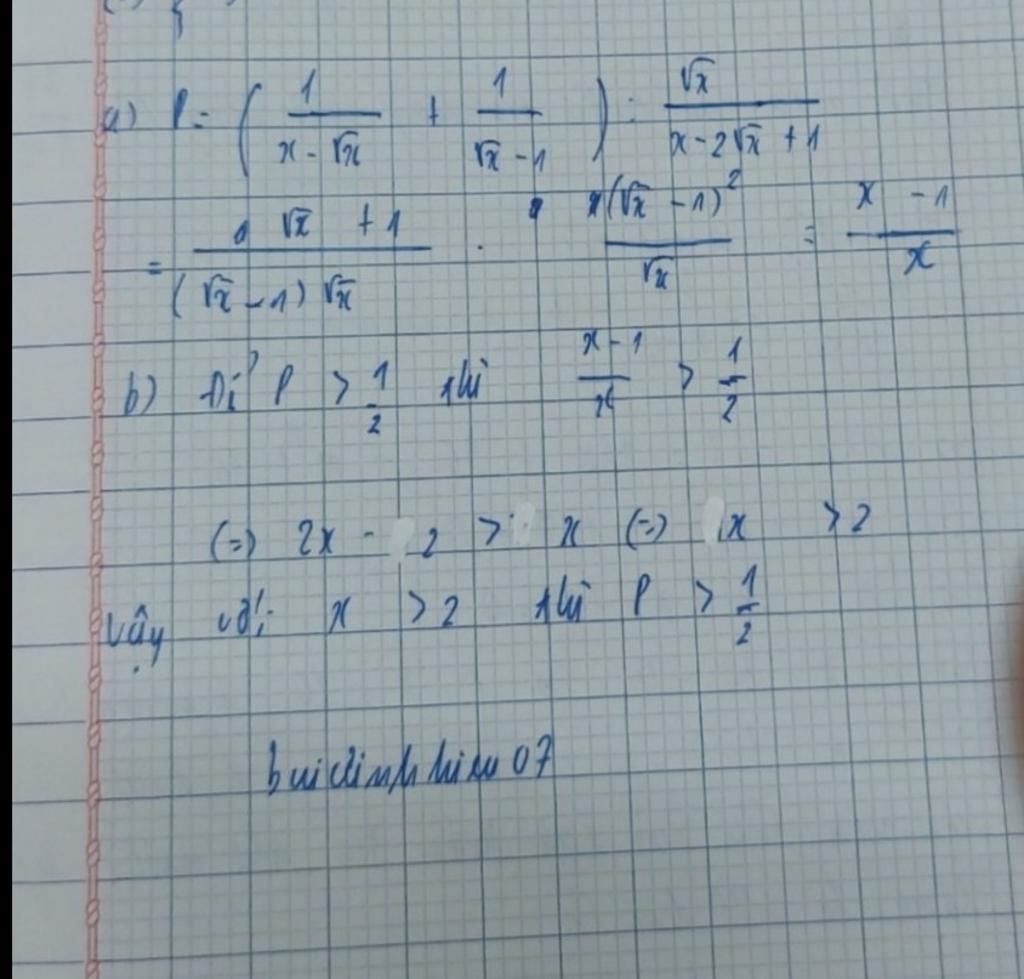 a) P = ( 1/(x - √x) + 1/(√x - 1) ) : √x/(x - 2√x + 1)
= (√x + 1)/((√x - 1)√x) . (√x - 1)²/√x = (x - 1)/x
b) Để P > 1/2 thì (x - 1)/x > 1/2
(=) 2x - 2 > x (=) x > 2
Vậy với x > 2 thì P > 1/2
buidinhhieu07